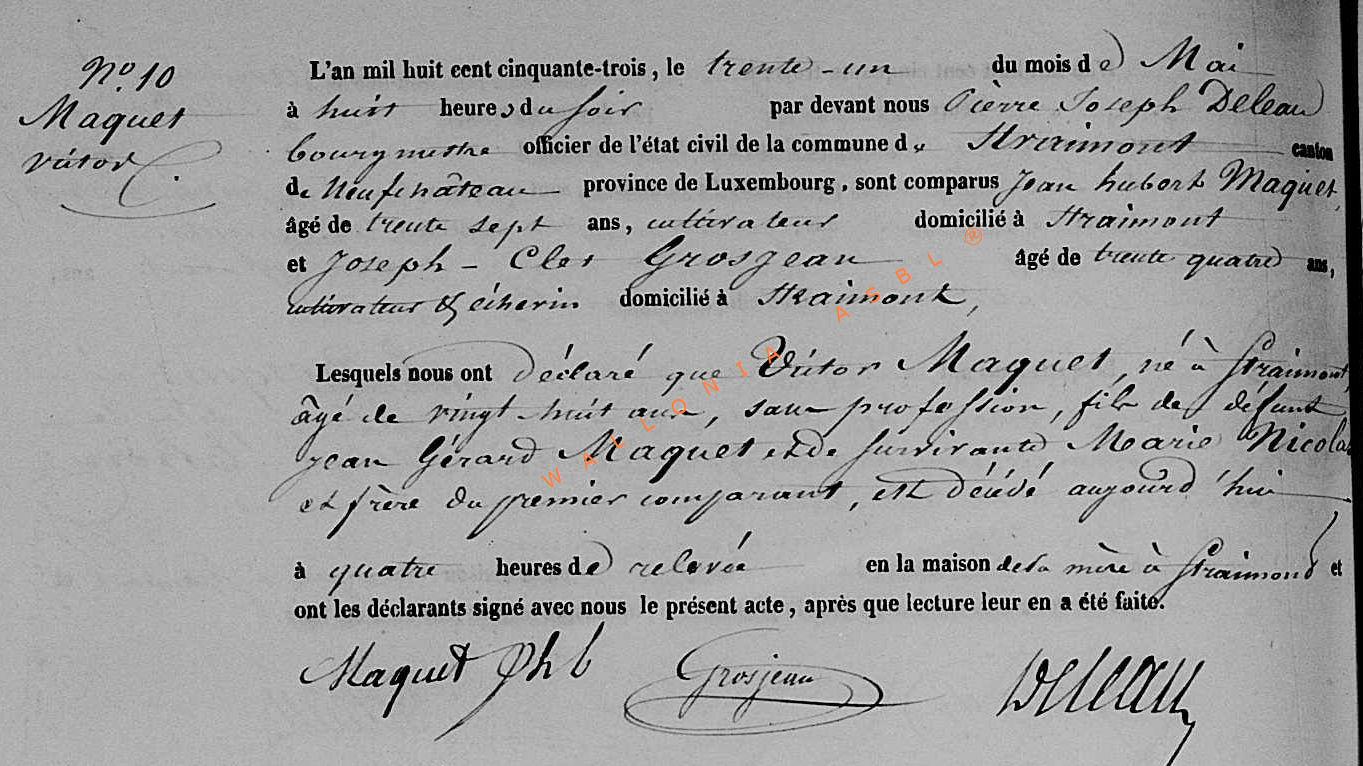 No. 10
Maquet
Victor
L'an mil huit cent cinquante-trois, le trente-un du mois de Mai
à huit heures du soir par devant nous Pièrre Joseph Deleau
bourgmestre officier de l'état civil de la commune de Straimont canton
de Neufchâteau province de Luxembourg, sont comparus Jean hubert Maquet,
âgé de trente sept ans, cultivateur domicilié à Straimont
et Joseph-Clet Grosjean âgé de trente quatre ans,
cultivateur & échevin domicilié à Straimont,
Lesquels nous ont déclaré que Victor Maquet, né à Straimont,
âgé de vingt-huit ans, sans profession, fils de défunt
Jean Gérard Maquet et de survivante Marie Nicolas
et frère du premier comparant, est décédé aujourd'hui
à quatre heures de relevée en la maison de sa mère à Straimond et
ont les déclarants signé avec nous le présent acte, après que lecture leur en a été faite.
Maquet Jh b Grosjean Deleau
WALLONIA ASBL ®